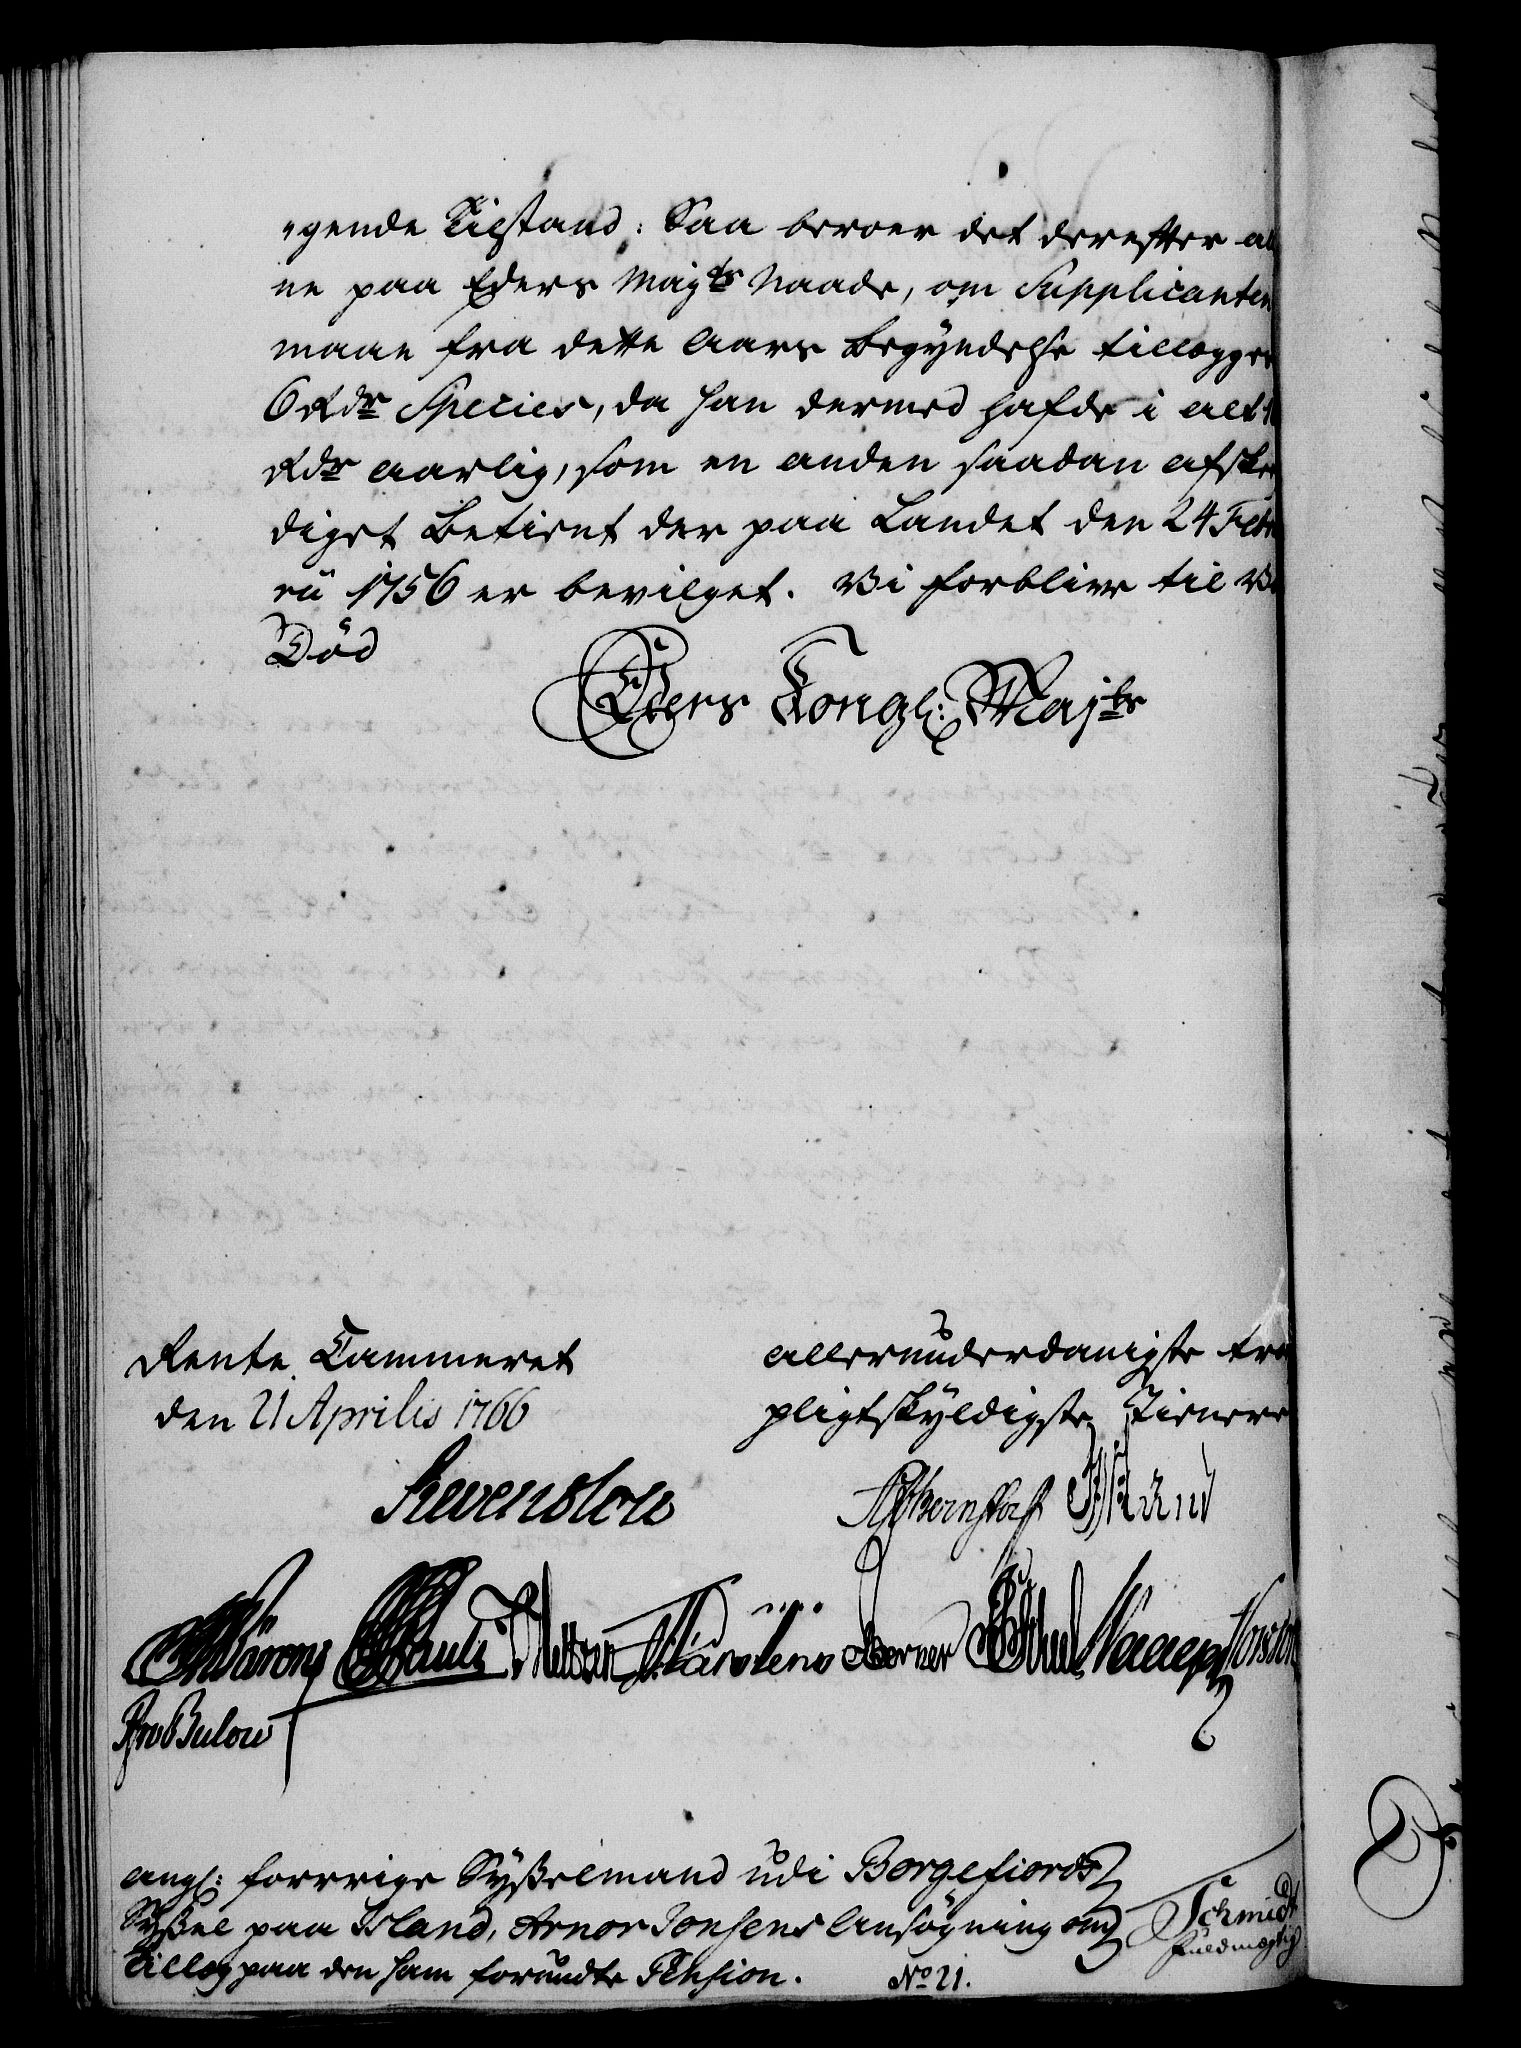 "gende Tilstand: Saa beroer det derefter al
ne paa Eders Mayts Naade, om Supplicanten
maae fra dette Aars Begyndelse tillegges
6 Rdr Species, da han dermed hafde i alt
Rdr aarlig, som en anden saadan afske
diget Betient der paa Landet den 24 Febr
rü 1756 er bevilget. Vi forblive til Vo
Död
Eders Kongl: Majts
Rente Cammeret
den 21 Aprilis 1766
allerunderdanigste tro
pligtskyldigste Tienere
Reventlow
Bernstorff
Pauli Kärstens Berner
Bulow
angl: forrige Sysselmand udi Borgefiords
Syssel paa Island, Arnor Jonsens Ansögning om
Tilleg paa den ham forundte Pension. No 21.
Schmidt
Fuldmegtig